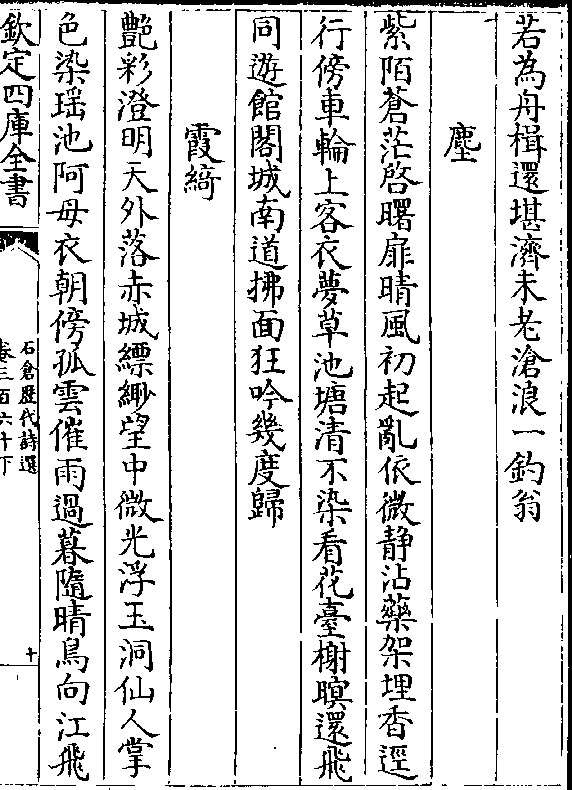 若為舟楫還堪濟未老滄浪一釣翁
塵
紫陌蒼茫啓曙扉晴風初起亂依微静沾藥架埋香逕
行傍車輪上客衣夢草池塘清不染看花臺榭暝還飛
同遊館閣城南道拂面狂吟幾度歸
霞綺
艷彩澄明天外落赤城縹緲望中微光浮玉洞仙人掌
色染瑶池阿母衣朝傍孤雲催雨過暮隨晴鳥向江飛
欽定四庫全書
石倉歷代詩選
卷三百六十下
十